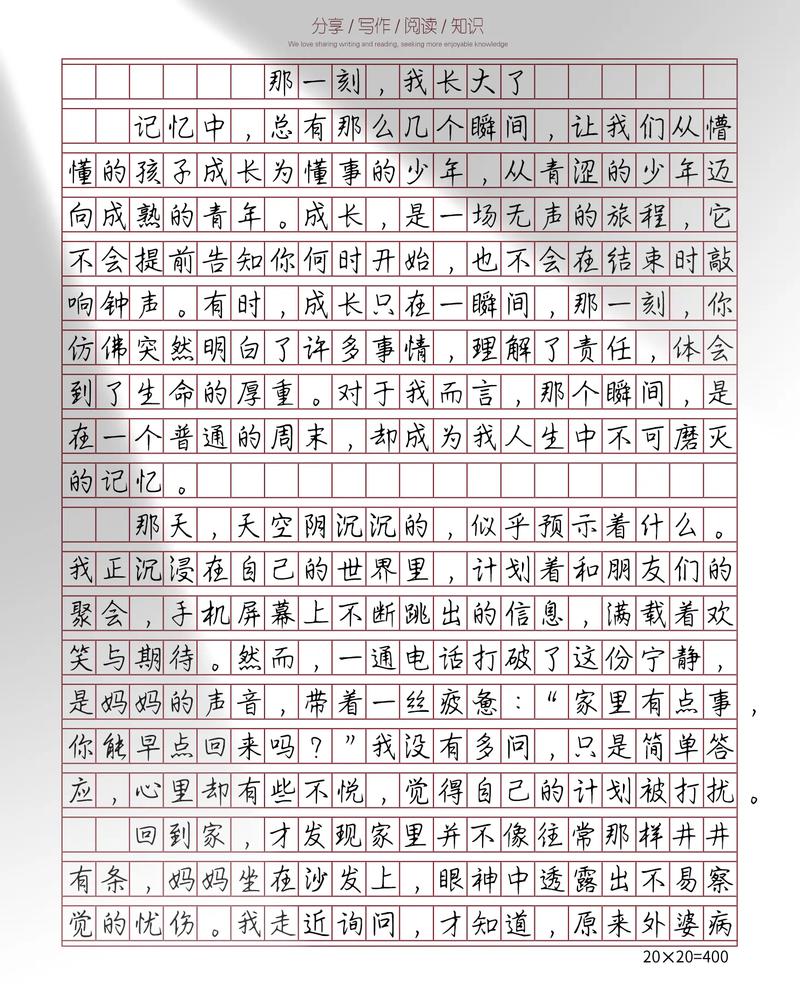 分享/写作/阅读/知识
We love sharing writing and reading, seeking more enjoyable knowledge
那一刻，我长大了
记忆中，总有那么几个瞬间，让我们从懵
懂的孩子成长为懂事的少年，从青涩的少年迈
向成熟的青年。成长，是一场无声的旅程，它
不会提前告知你何时开始，也不会在结束时敲
响钟声。有时，成长只在一瞬间，那一刻，你
仿佛突然明白了许多事情，理解了责任，体会
到了生命的厚重。对于我而言，那个瞬间，是
在一个普通的周末，却成为我人生中不可磨灭
的记忆。
那天，天空阴沉沉的，似乎预示着什么。
我正沉浸在自己的世界里，计划着和朋友们的
聚会，手机屏幕上不断跳出的信息，满载着欢
笑与期待。然而，一通电话打破了这份宁静，
是妈妈的声音，带着一丝疲惫：“家里有点事，
你能早点回来吗？”我没有多问，只是简单答
应，心里却有些不悦，觉得自己的计划被打扰。
回到家，才发现家里并不像往常那样井井
有条，妈妈坐在沙发上，眼神中透露出不易察
觉的忧伤。我走近询问，才知道，原来外婆病
20×20=400